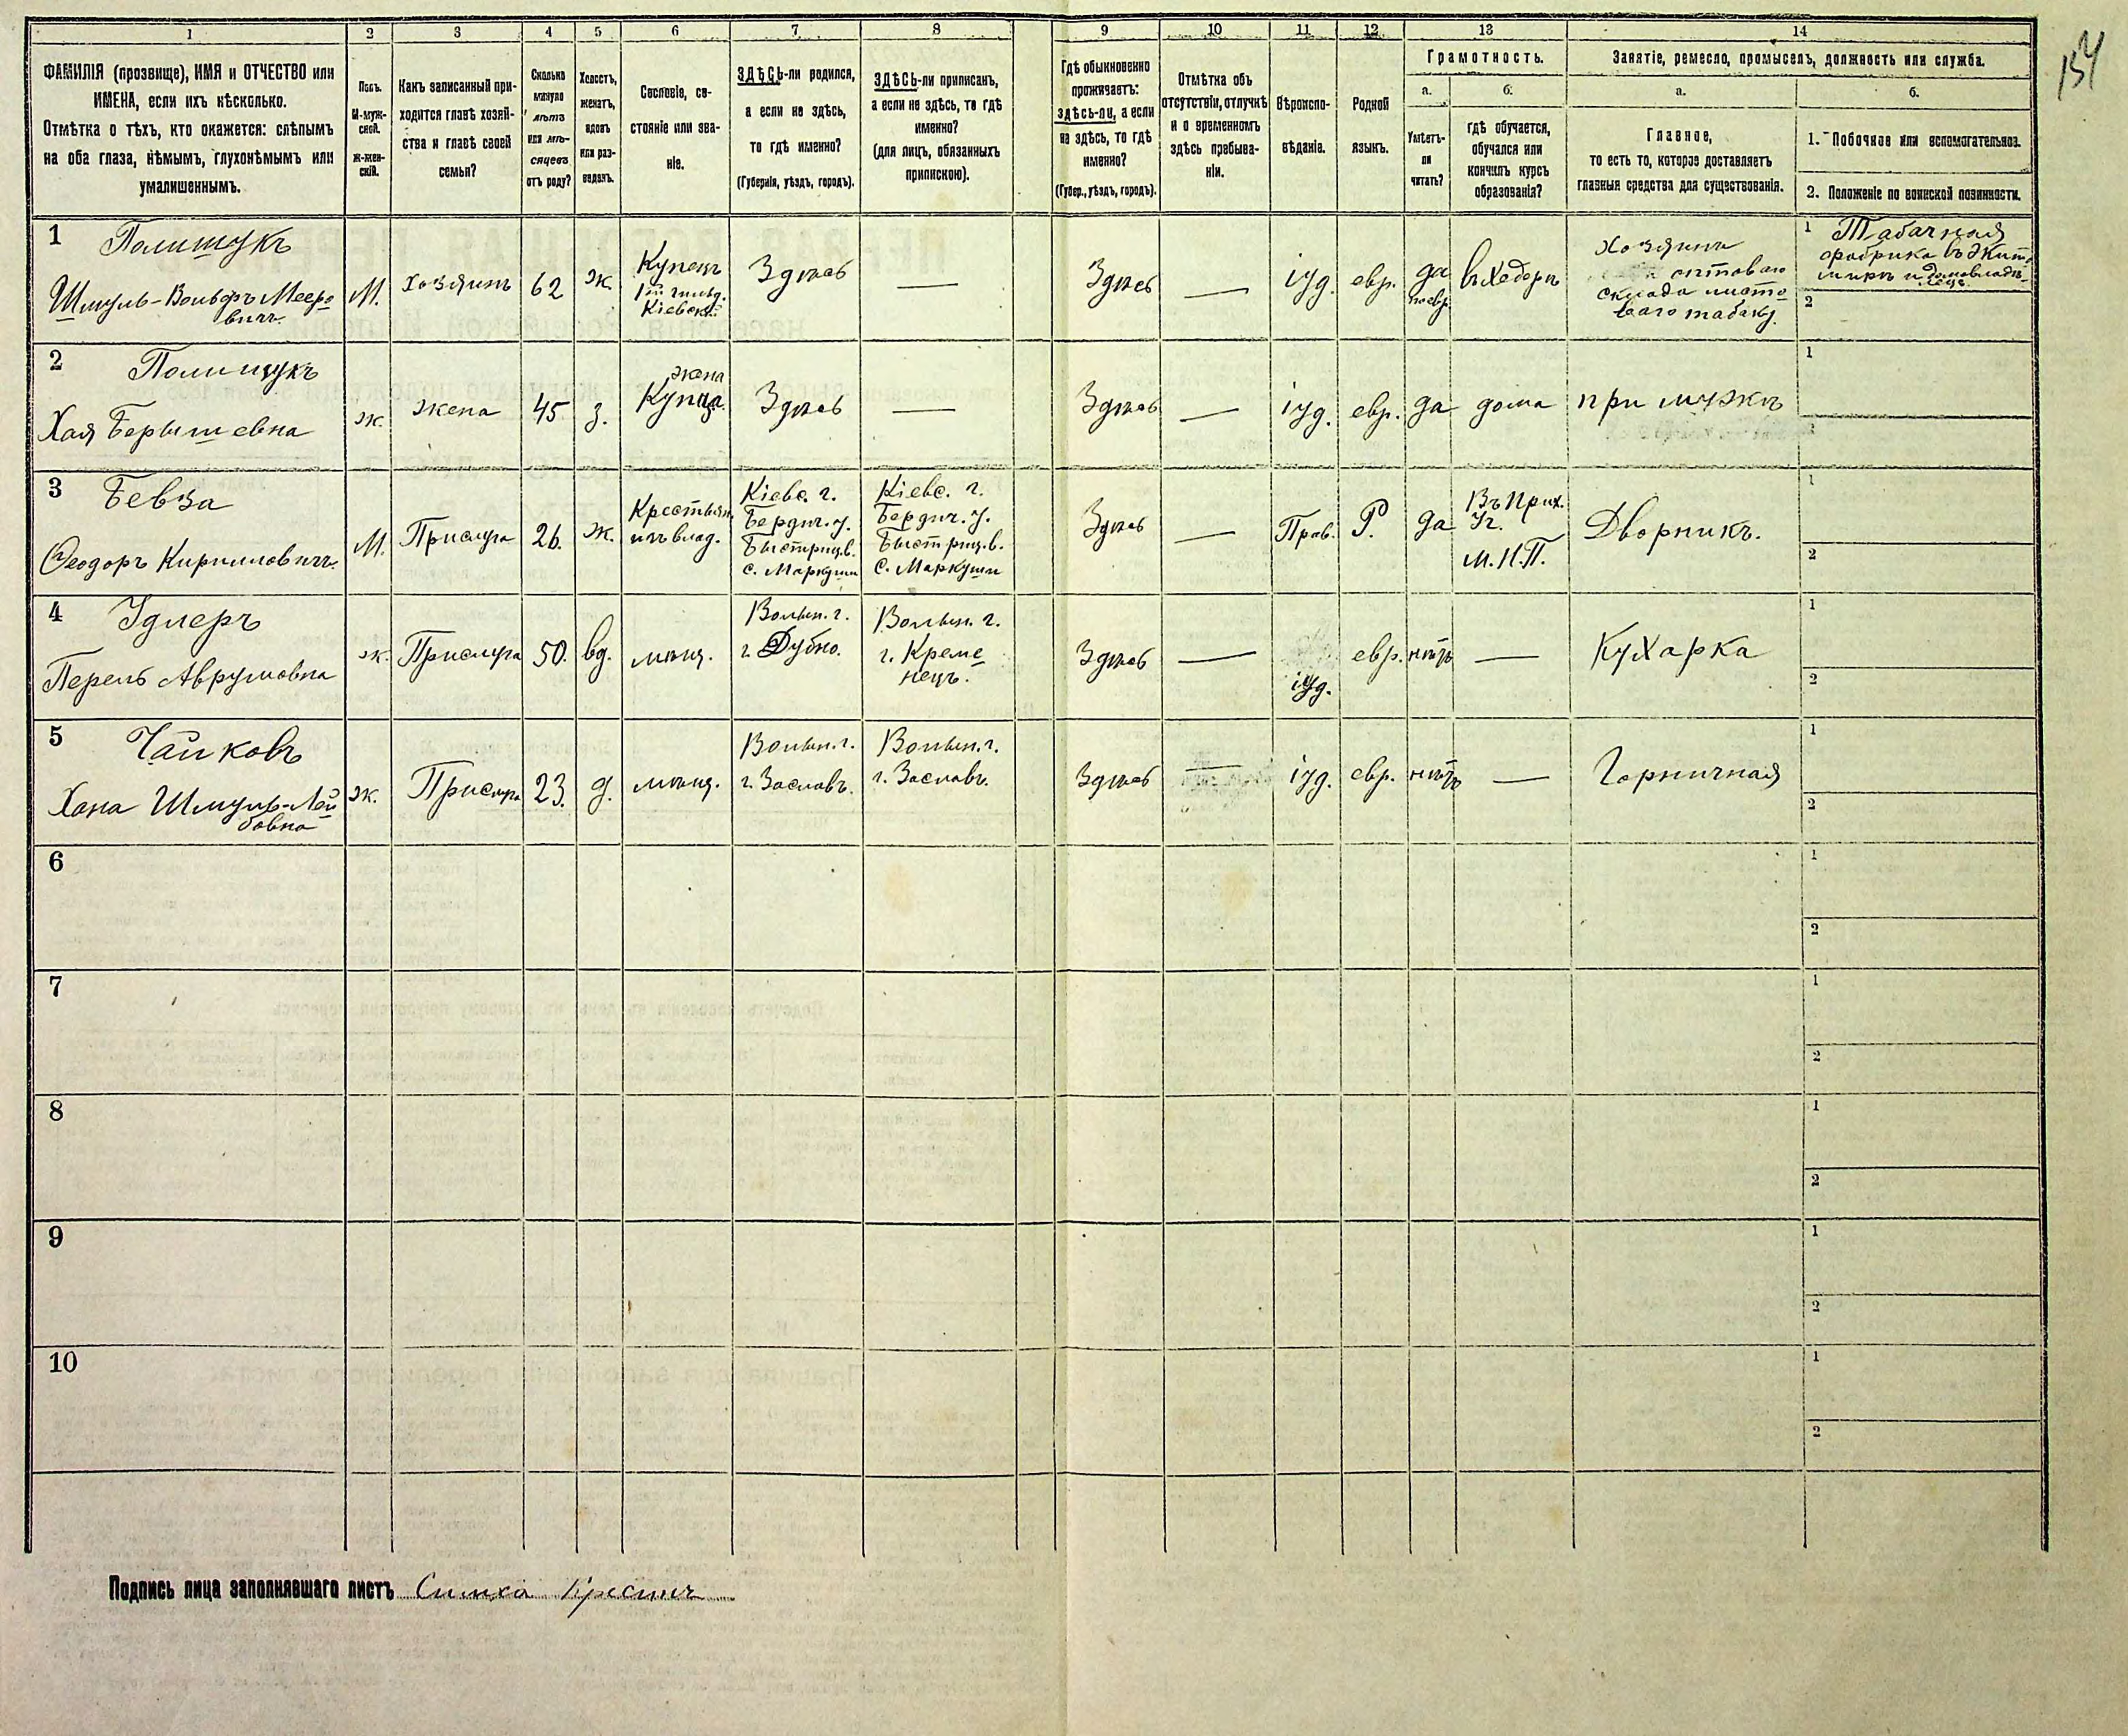 154
1 2 3 4 5 6 7 8 9 10 11 12 13 14
ФАМИЛІЯ (прозвище), ИМЯ и ОТЧЕСТВО или
ИМЕНА, если ихъ нѣсколько.
Отмѣтка о тѣхъ, кто окажется: слѣпымъ
на оба глаза, нѣмымъ, глухонѣмымъ или
умалишеннымъ.
Полъ.
М-муж-
ской.
Ж-жен-
скій.
Какъ записанный при-
ходится главѣ хозяй-
ства и главѣ своей
семьи?
Сколько
минуло
лѣтъ
или мѣ-
сяцевъ
отъ роду?
Холостъ,
женатъ,
вдовъ
или раз-
веденъ.
Сословіе, со-
стояніе или зва-
ніе.
ЗДѢСЬ-ли родился,
а если не здѣсь,
то гдѣ именно?
(Губернія, уѣздъ, городъ).
ЗДѢСЬ-ли приписанъ,
а если не здѣсь, то гдѣ
именно?
(для лицъ, обязанныхъ
припискою).
Гдѣ обыкновенно
проживаетъ:
здѣсь-ли, а если
не здѣсь, то гдѣ
именно?
(Губер., уѣздъ, городъ).
Отмѣтка объ
отсутствіи, отлучкѣ
и о временномъ
здѣсь пребыва-
ніи.
Вѣроиспо-
вѣданіе.
Родной
языкъ.
Грамотность.
а.
Умѣетъ-
ли
читать?
б.
гдѣ обучается,
обучался или
кончилъ курсъ
образованія?
Занятіе, ремесло, промыселъ, должность или служба.
а.
Главное,
то есть то, которое доставляетъ
главныя средства для существованія.
б.
1. Побочное или вспомогательное.
2. Положеніе по воинской повинности.
1
Полищукъ
Шмуль-Вольфъ Мееро
вичъ
М.
Хозяинъ
62
ж.
Купецъ
1ой гильд.
Кіевскій
Здѣсь
—
Здѣсь
—
іуд.
евр.
да
по евр.
въ Хедерѣ
Хозяинъ
оптоваго
склада листо
ваго табаку.
1 Табачная
фабрика въ Жит.
мирѣ и домовладѣ-
лецъ
2
2
Полищукъ
Хая Берышевна
ж.
жена
45
з.
жена
Купца
Здѣсь
—
Здѣсь
—
іуд.
евр.
да
дома
при мужѣ
1
2
3
Бевза
Ѳеодоръ Кирилловичъ
М.
Прислуга
26.
ж.
Крестьян.
изъ влад.
Кіевс. г.
Бердич. у.
Быстриц. в.
с. Маркуши
Кіевс. г.
Бердич. у.
Быстриц. в.
с. Маркуши
Здѣсь
—
Прав.
Р.
да
Въ Прих.
Уч.
М. Н. П.
Дворникъ.
1
2
4
Удлеръ
Перель Аврумовна
ж.
Прислуга
50.
вд.
мѣщ.
Волын. г.
г. Дубно.
Волын. г.
г. Креме
нецъ.
Здѣсь
—
іуд.
евр.
нѣтъ
—
Кухарка
1
2
5
Чайковъ
Хана Шмуль-Лей
бовна
ж.
Прислуга
23.
д.
мѣщ.
Волын. г.
г. Заславъ.
Волын. г.
г. Заславъ.
Здѣсь
—
іуд.
евр.
нѣтъ
—
Горничная
1
2
6
1
2
7
1
2
8
1
2
9
1
2
10
1
2
Подпись лица заполнявшаго листъ Симха